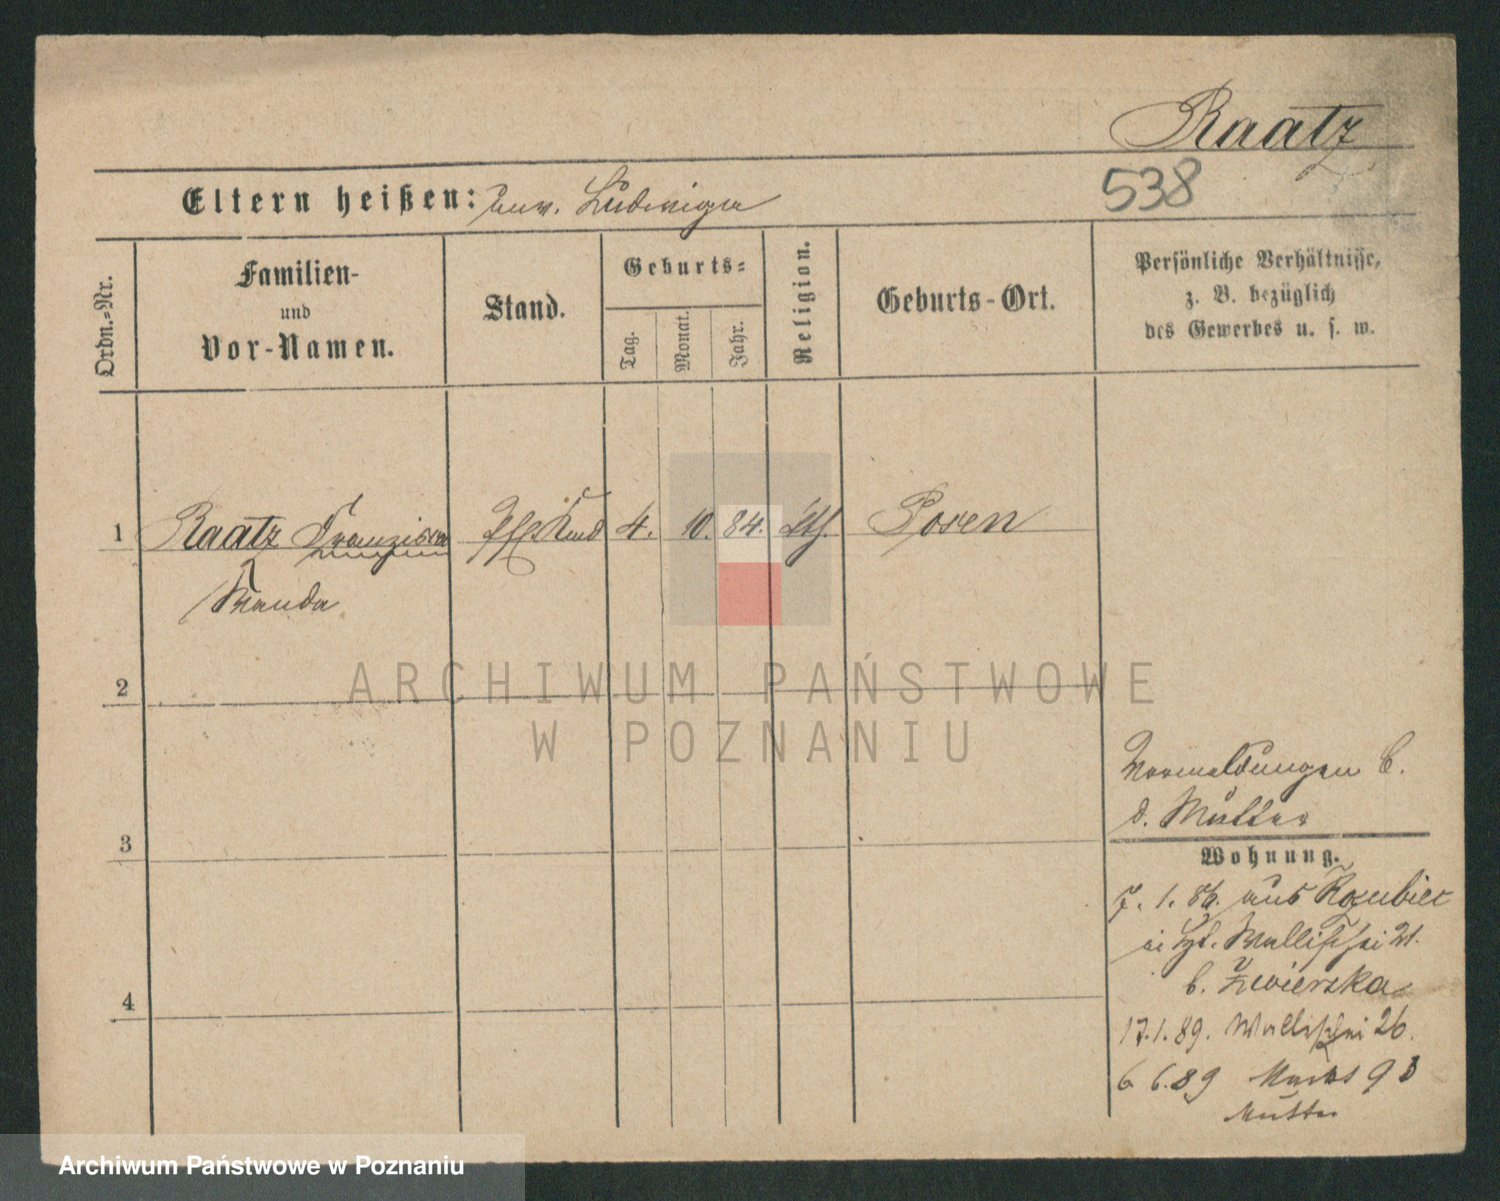 Raatz
538
Eltern heißen: unv. Ludwiga
Ordn.-Nr.
Familien-
und
Vor-Namen.
Stand.
Geburts-
Tag.
Monat.
Jahr.
Religion.
Geburts-Ort.
Persönliche Verhältnisse,
z. B. bezüglich
des Gewerbes u. s. w.
1 Raatz Franziska Pfl. Kind 4. 10. 84. kth. Posen
Wanda
2
3
4
Vormeldungen b.
d. Mutter
Wohnung.
7. 1. 86. aus
Wallischei 21.
b. Zwierska
17.1.89. Wallischei 26.
6. 6. 89 Markt 93
Mutter
ARCHIWUM PAŃSTWOWE
W POZNANIU
Archiwum Państwowe w Poznaniu